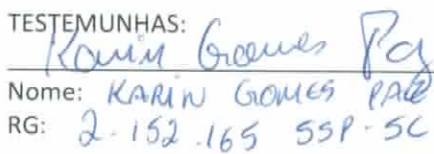 TESTEMUNHAS:
Karin Gomes
Nome: KARIN GOMES
RG: 2.152.165 SSP-SC